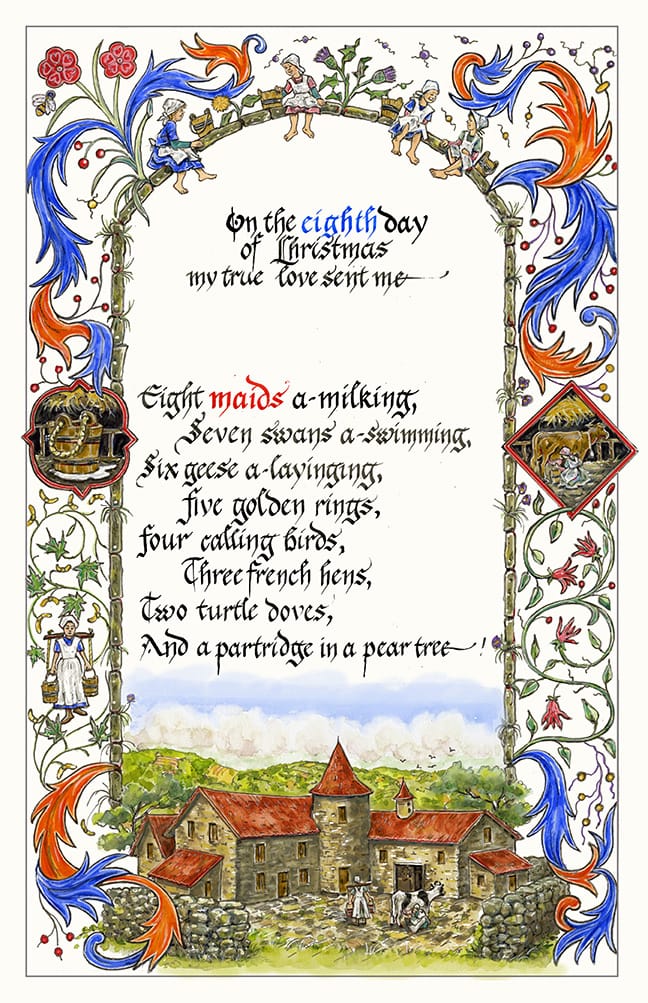 On the eighth day
of Christmas
my true love sent me
Eight maids a-milking,
Seven swans a-swimming,
Six geese a-layinging,
five golden rings,
four calling birds,
Three french hens,
Two turtle doves,
And a partridge in a pear tree!